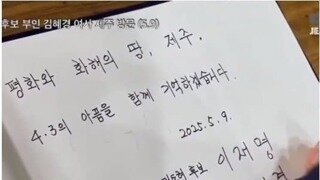 후보 부인 김혜경 여사 제주 방문 (5.9)
평화와 화해의 땅, 제주.
4.3의 아픔을 함께 기억하겠습니다.
2025. 5. 9.
후보 이재명